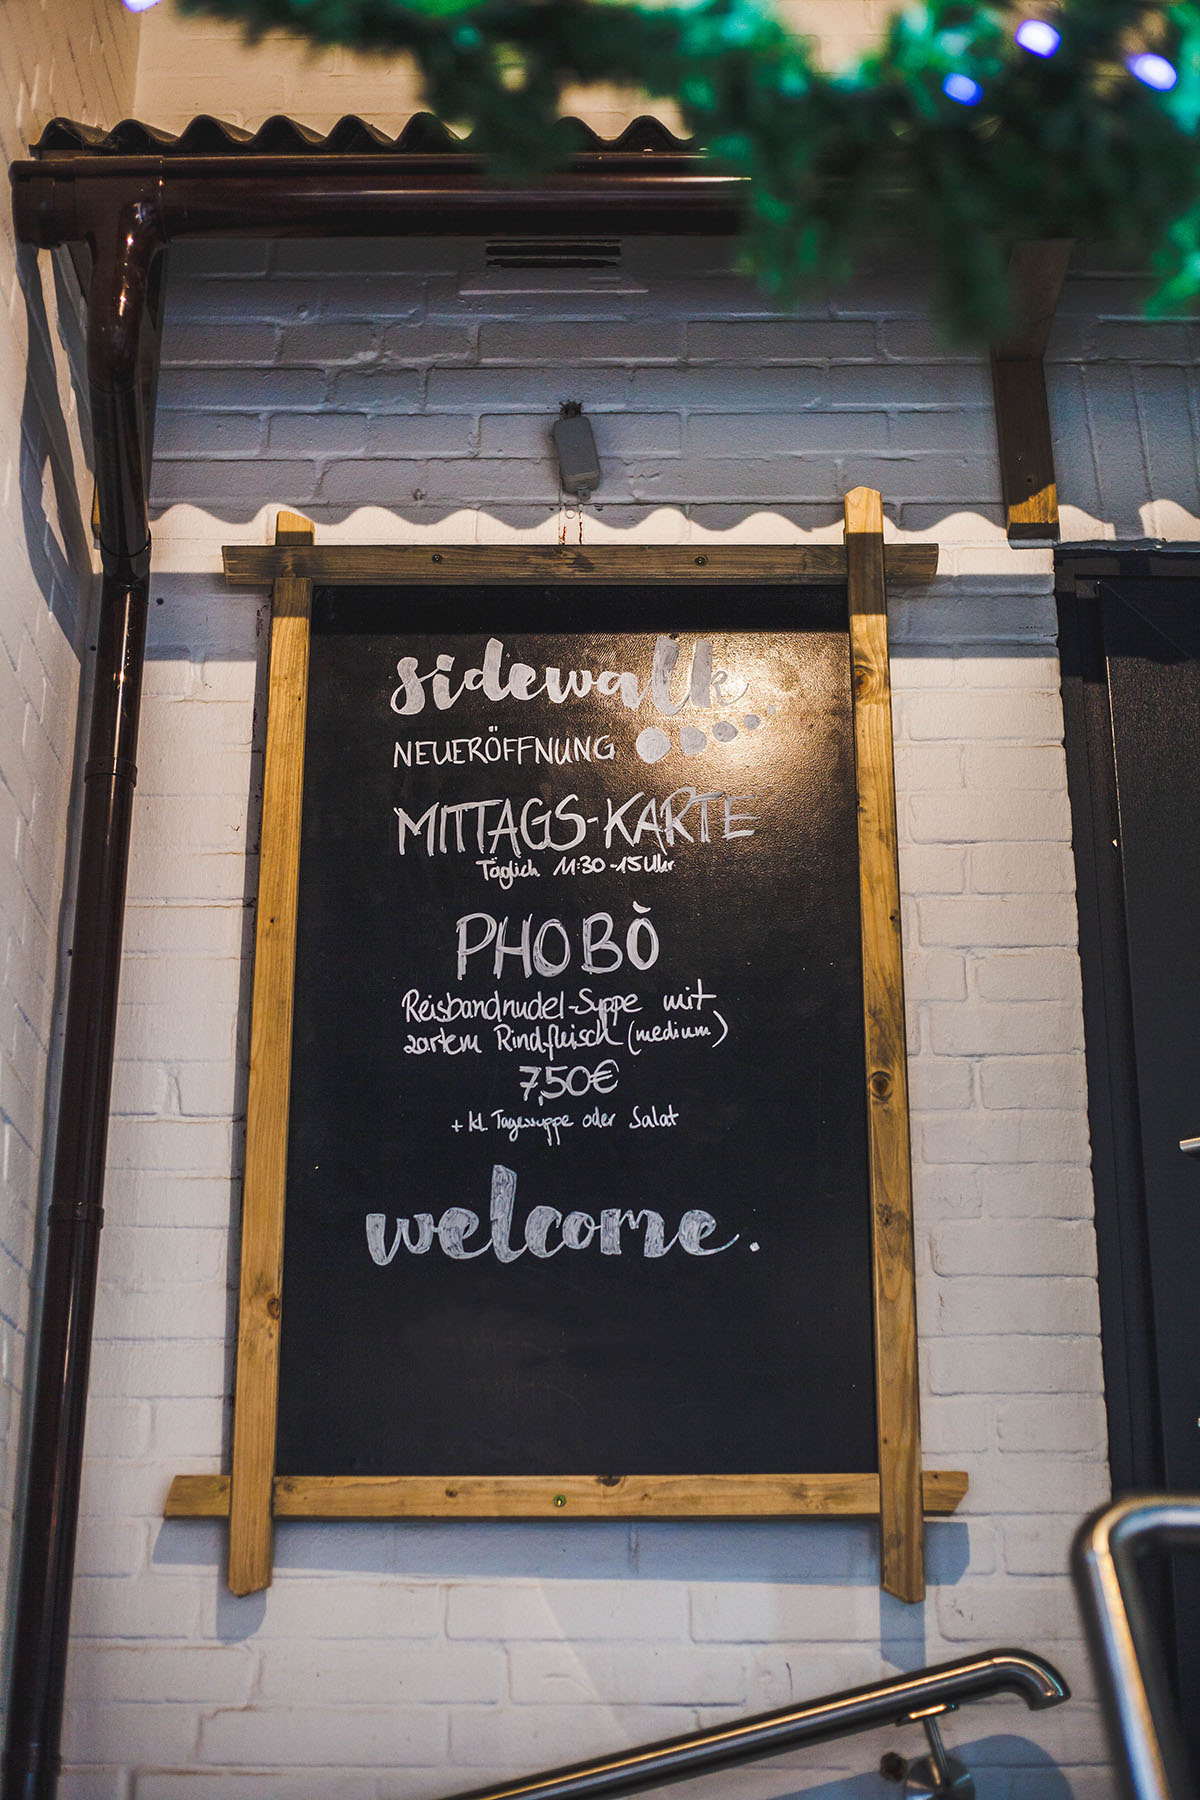 sidewalk
NEUERÖFFNUNG
MITTAGS-KARTE
Täglich 11:30-15Uhr
PHO BÒ
Reisbandnudel-Suppe mit
zartem Rindfleisch (medium)
7,50€
+ kl. Tagessuppe oder Salat
welcome.